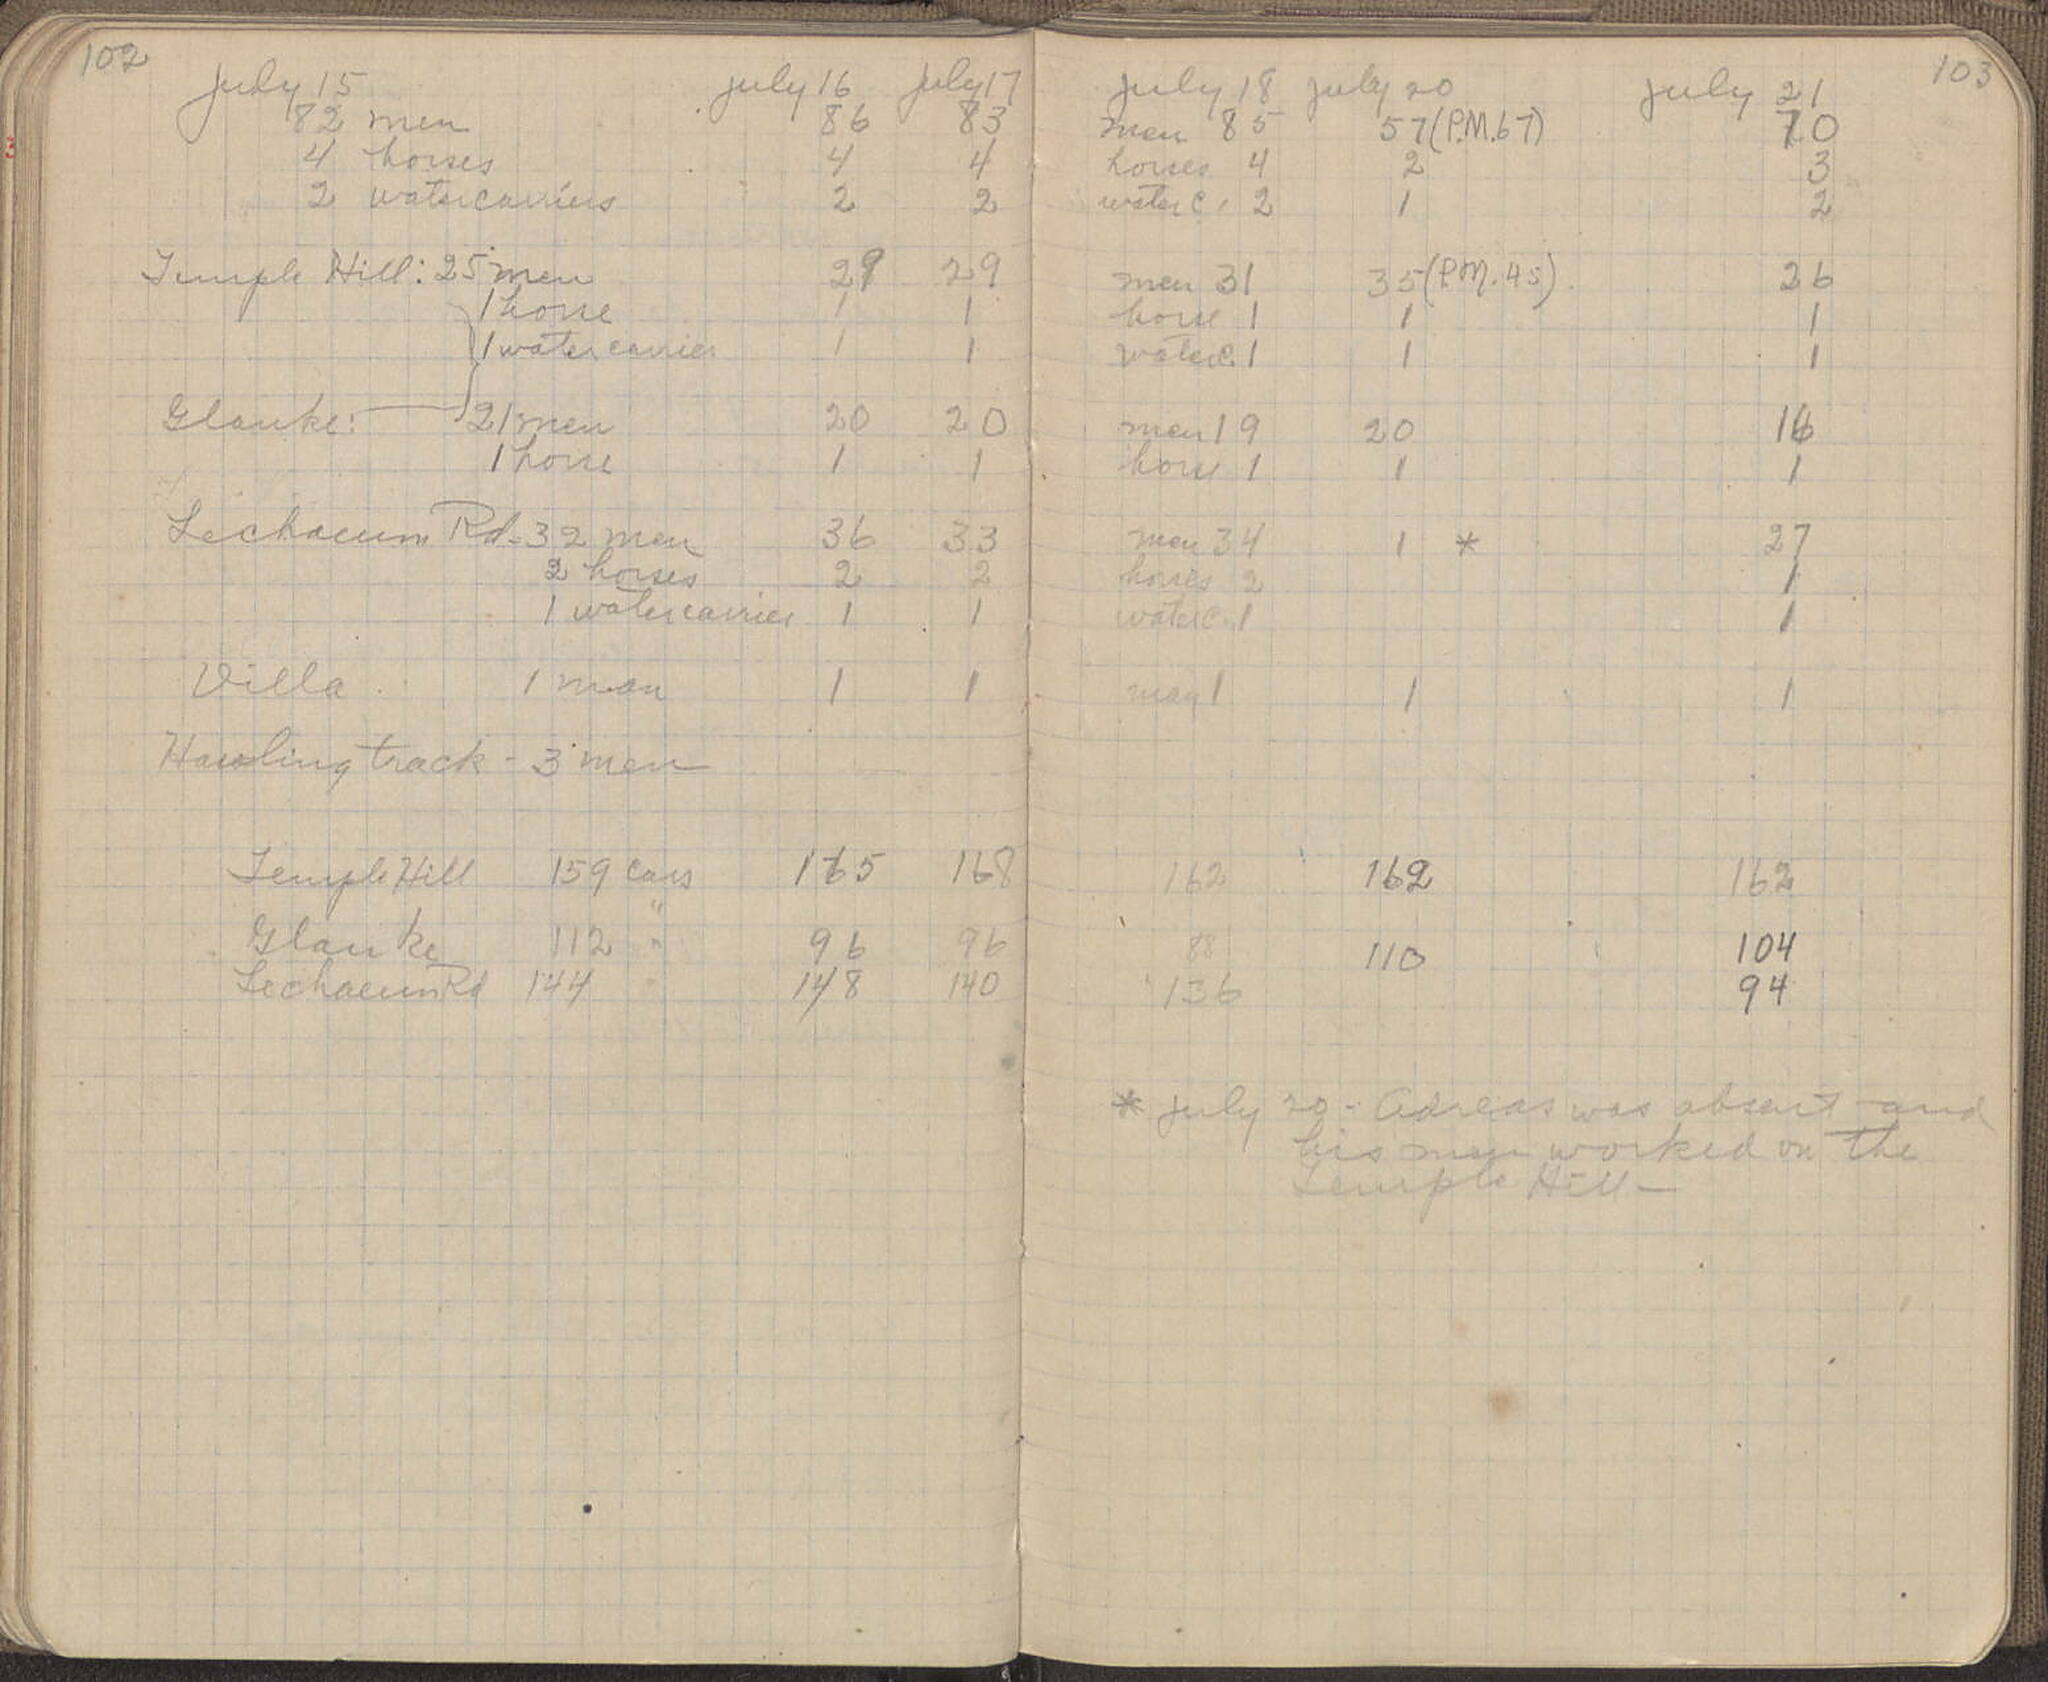 102
July 15 July 16 July 17
82 men 86 83
4 horses 4 4
2 watercarriers 2 2
Temple Hill: 25 men 29 29
1 horse 1 1
1 watercarrier 1 1
Glauke: 21 men 20 20
1 horse 1 1
Lechaeum Rd - 32 men 36 33
2 horses 2 2
1 watercarrier 1 1
Villa 1 man 1 1
Hauling track - 3 men
Temple Hill 159 cars 165 168
Glauke 112 " 96 96
Lechaeum Rd 144 " 148 140
103
July 18 July 20 July 21
men 85 57 (P.M. 67) 70
horses 4 2 3
water c. 2 1 2
men 31 35 (P.M. 45) 26
horse 1 1 1
water c. 1 1 1
men 19 20 16
horse 1 1 1
men 34 1 * 27
horses 2 1
water c. 1 1
man 1 1 1
162 162 162
88 110 104
136 94
* July 20 - Adreas was absent and
his men worked on the
Temple Hill -